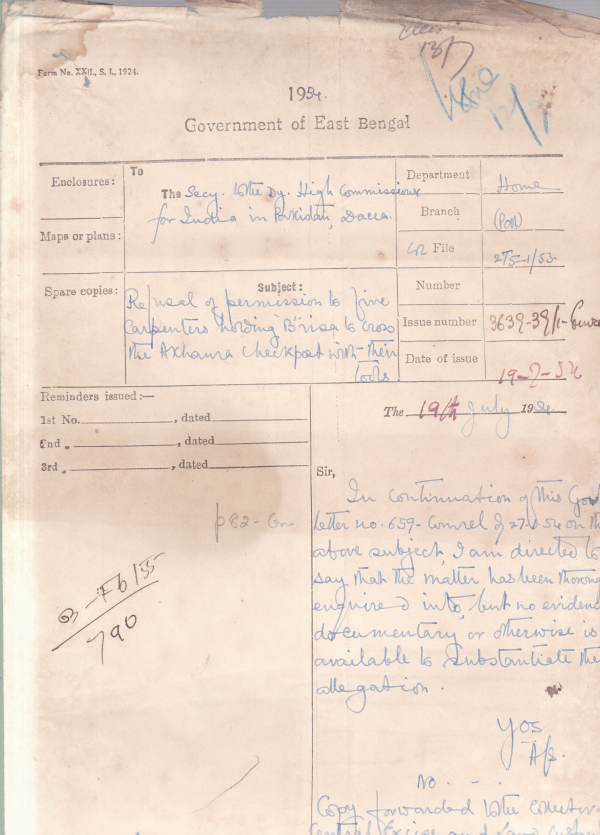 Form No. XXII., S. I., 1924.
1954.
Government of East Bengal
Enclosures:
Maps or plans:
Spare copies:
To
The Secy. to the Dy. High Commissioner
for India in Pakistan, Dacca.
Subject:
Refusal of permission to five
Carpenters holding 'B' visa to cross
the Akhaura Checkpost with their
tools
Department
Home
Branch
(Poll)
File
2T5-1/53.
Number
Issue number
3639-39/1-
Date of issue
19-7-54
Reminders issued:—
1st No. , dated
2nd „ , dated
3rd „ , dated
The 19th July 1954.
Sir,
In continuation of this Gov
letter no. 659- Comrel of 27-1-54 on th
above subject, I am directed to
say that the matter has been thorou
enquired into, but no eviden
documentary or otherwise is
available to substantiate the
allegation.
Yrs.
No. - .
Copy forwarded to the Collector
Central Excise and Land
B - 76/55
790